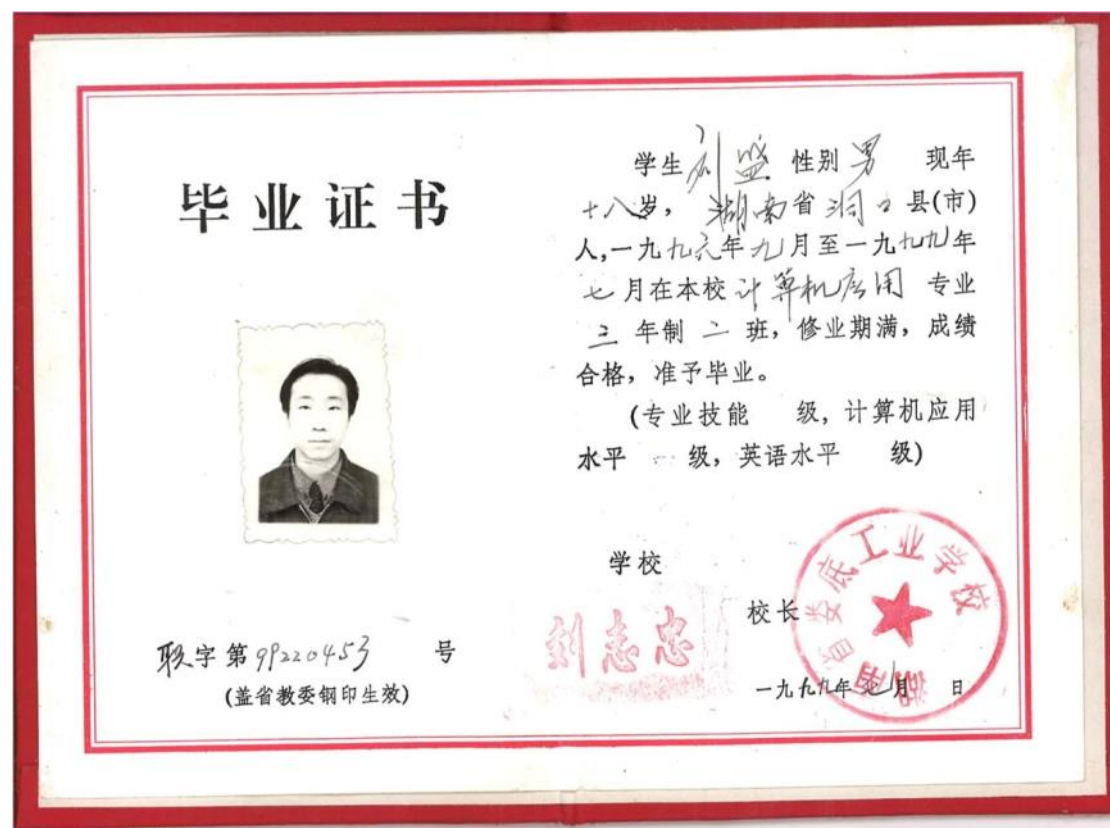 毕业证书
联字第99220453号
(盖省教委钢印生效)
学生刘盛性别男 现年
十八岁，湖南省洞口县(市)
人,一九九六年九月至一九九九年
七月在本校计算机应用专业
三年制二班，修业期满，成绩
合格，准予毕业。
(专业技能 级，计算机应用
水平 级，英语水平 级)
学校
校长
刘志忠
湖南省娄底工业学校
一九九九年 月 日